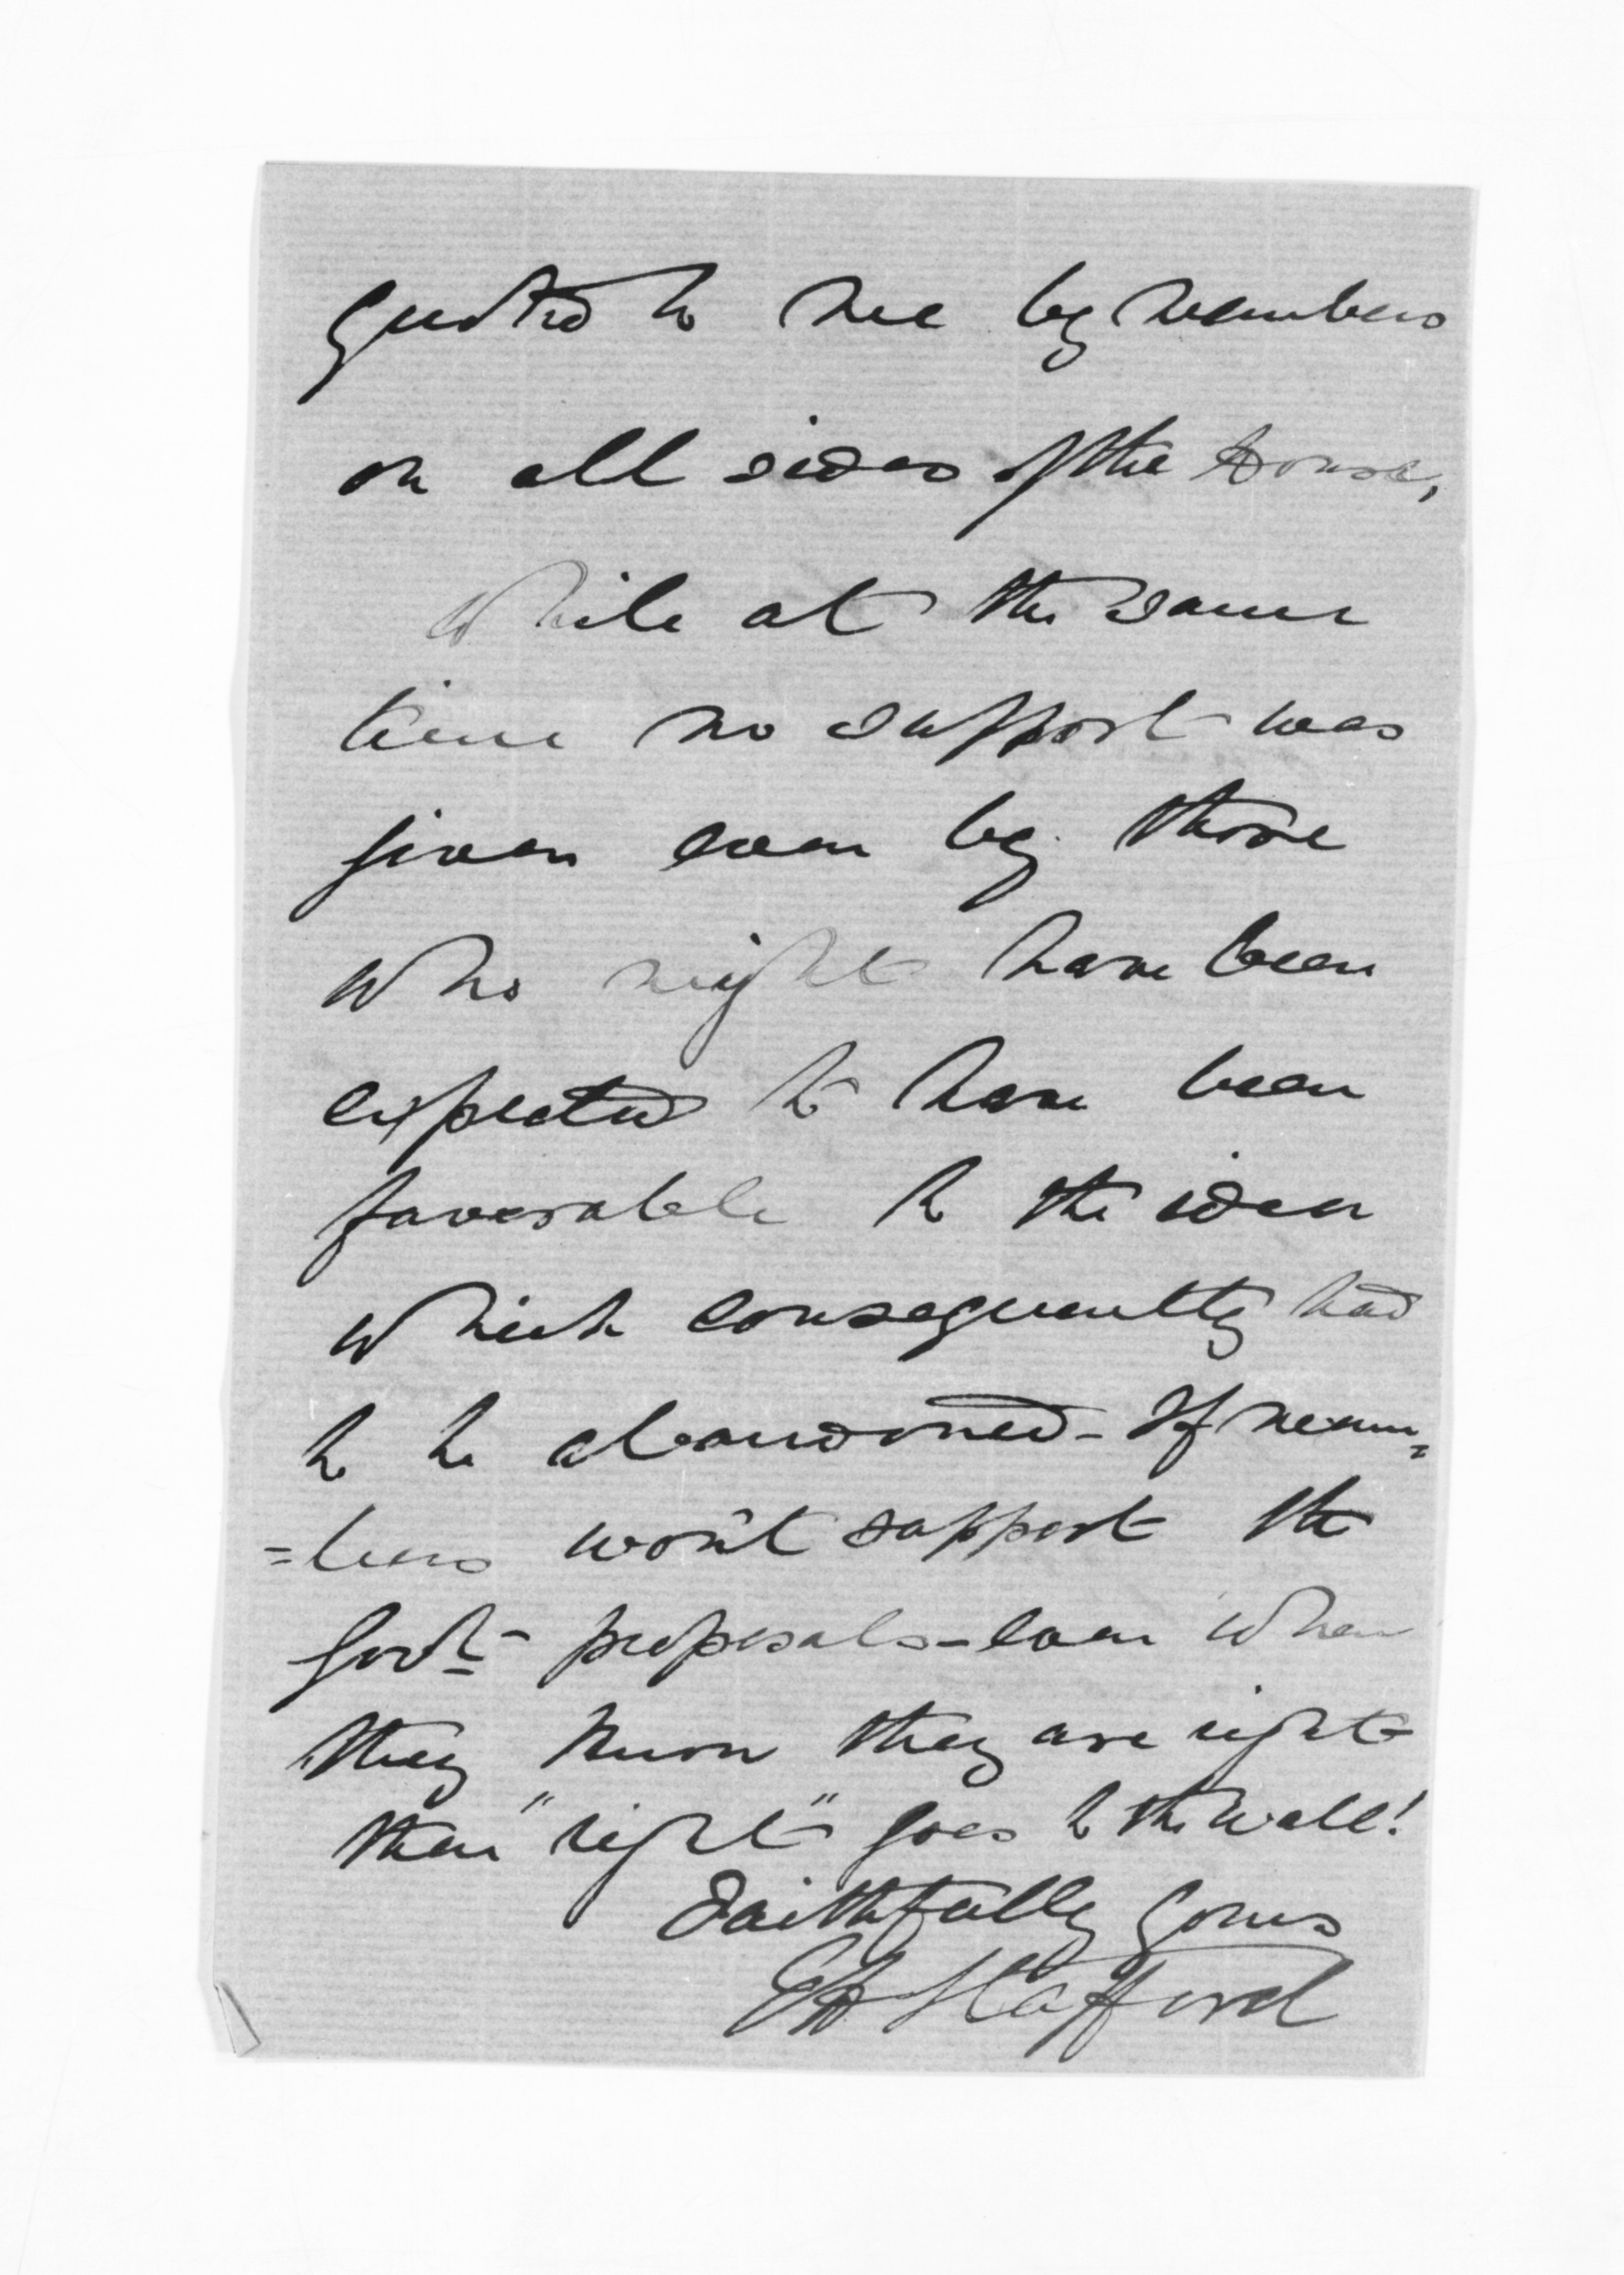 quoted to me by members
on all sides of the House,
While at the same
time no support was
given even by those
who might have been
expected to have been
favorable to the idea
which consequently had
to be abandoned - If mem=
=bers won't support the
Govt. proposals - even when
they know they are right
then "right" goes to the wall!
Faithfully yours
EW Stafford